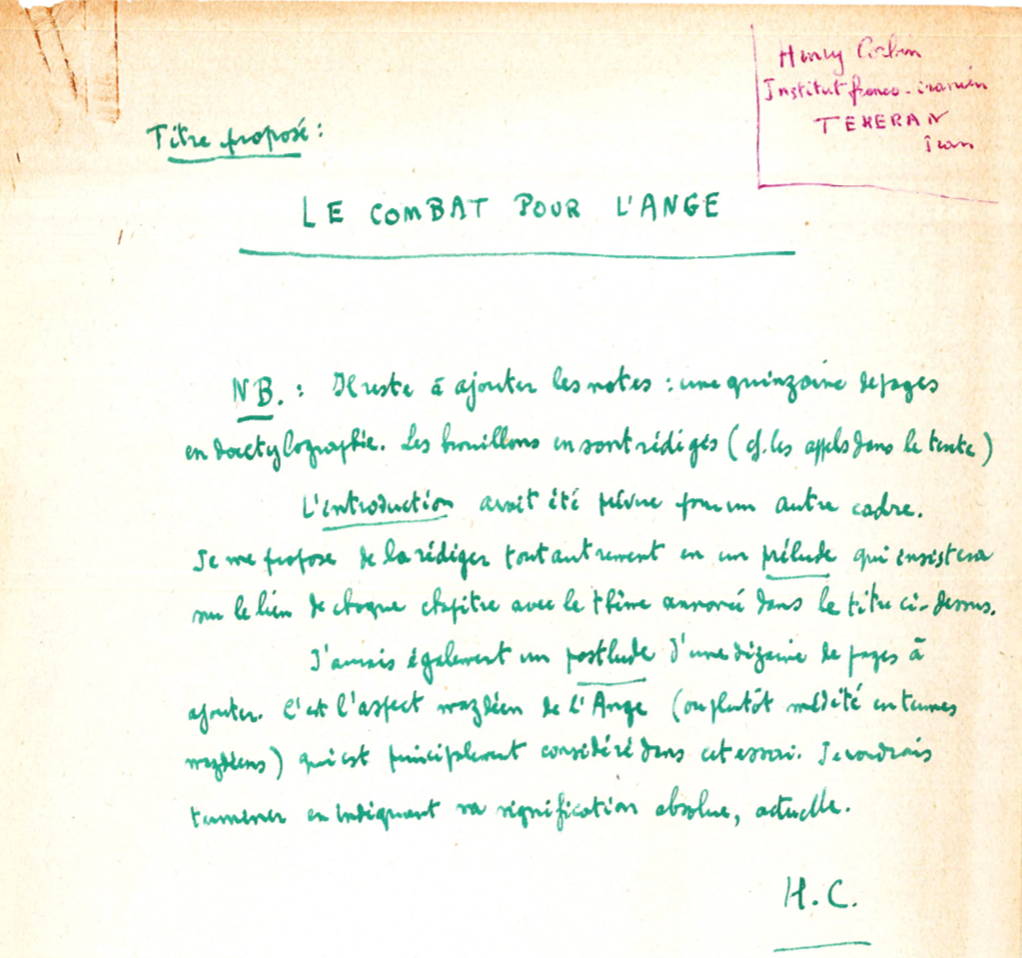 Henry Corbin
Institut franco-iranien
TEHERAN
Iran
Titre proposé :
LE COMBAT POUR L'ANGE
NB. : Il reste à ajouter les notes : une quinzaine de pages
en dactylographie. Les brouillons en sont rédigés (cf. les appels dans le texte)
L'introduction avait été prévue pour un autre cadre.
Je me propose de la rédiger tout autrement en un prélude qui insistera
sur le lien de chaque chapitre avec le thème annoncé dans le titre ci-dessus.
J'aurais également un postlude d'une dizaine de pages à
ajouter. C'est l'aspect mazdéen de l'Ange (ou plutôt médité en termes
mazdéens) qui est principalement considéré dans cet essai. Je voudrais
terminer en indiquant sa signification absolue, actuelle.
H.C.